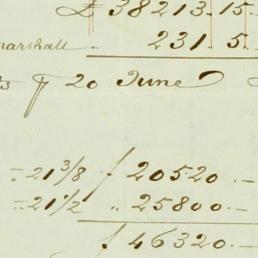 £ 38213.15.
marshall .. 231.5.
20 June
= 21 3/8 ƒ 20520.—
= 21 1/2 .. 25800.—
ƒ 46320.—